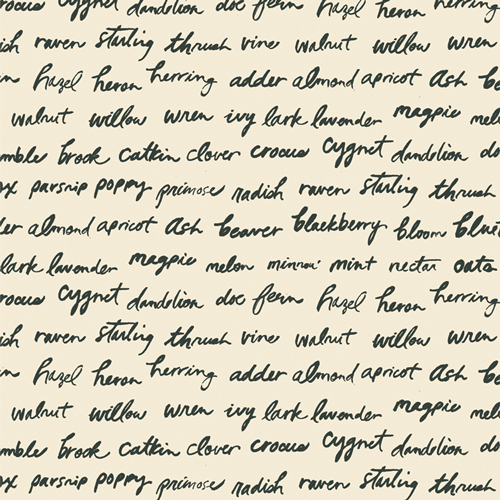 crocus cygnet dandelion doe fern hazel heron herring
raven starling thrush vine walnut willow wren
hazel heron herring adder almond apricot ash
walnut willow wren ivy lark lavender magpie
brook catkin clover crocus cygnet dandelion
parsnip poppy primose radish raven starling thrush
almond apricot ash beaver blackberry bloom
lark lavender magpie melon minnow mint nectar oats
cygnet dandelion doe fern hazel heron herring
raven starling thrush vine walnut willow wren
hazel heron herring adder almond apricot ash
walnut willow wren ivy lark lavender magpie
brook catkin clover crocus cygnet dandelion
parsnip poppy primose radish raven starling thrush